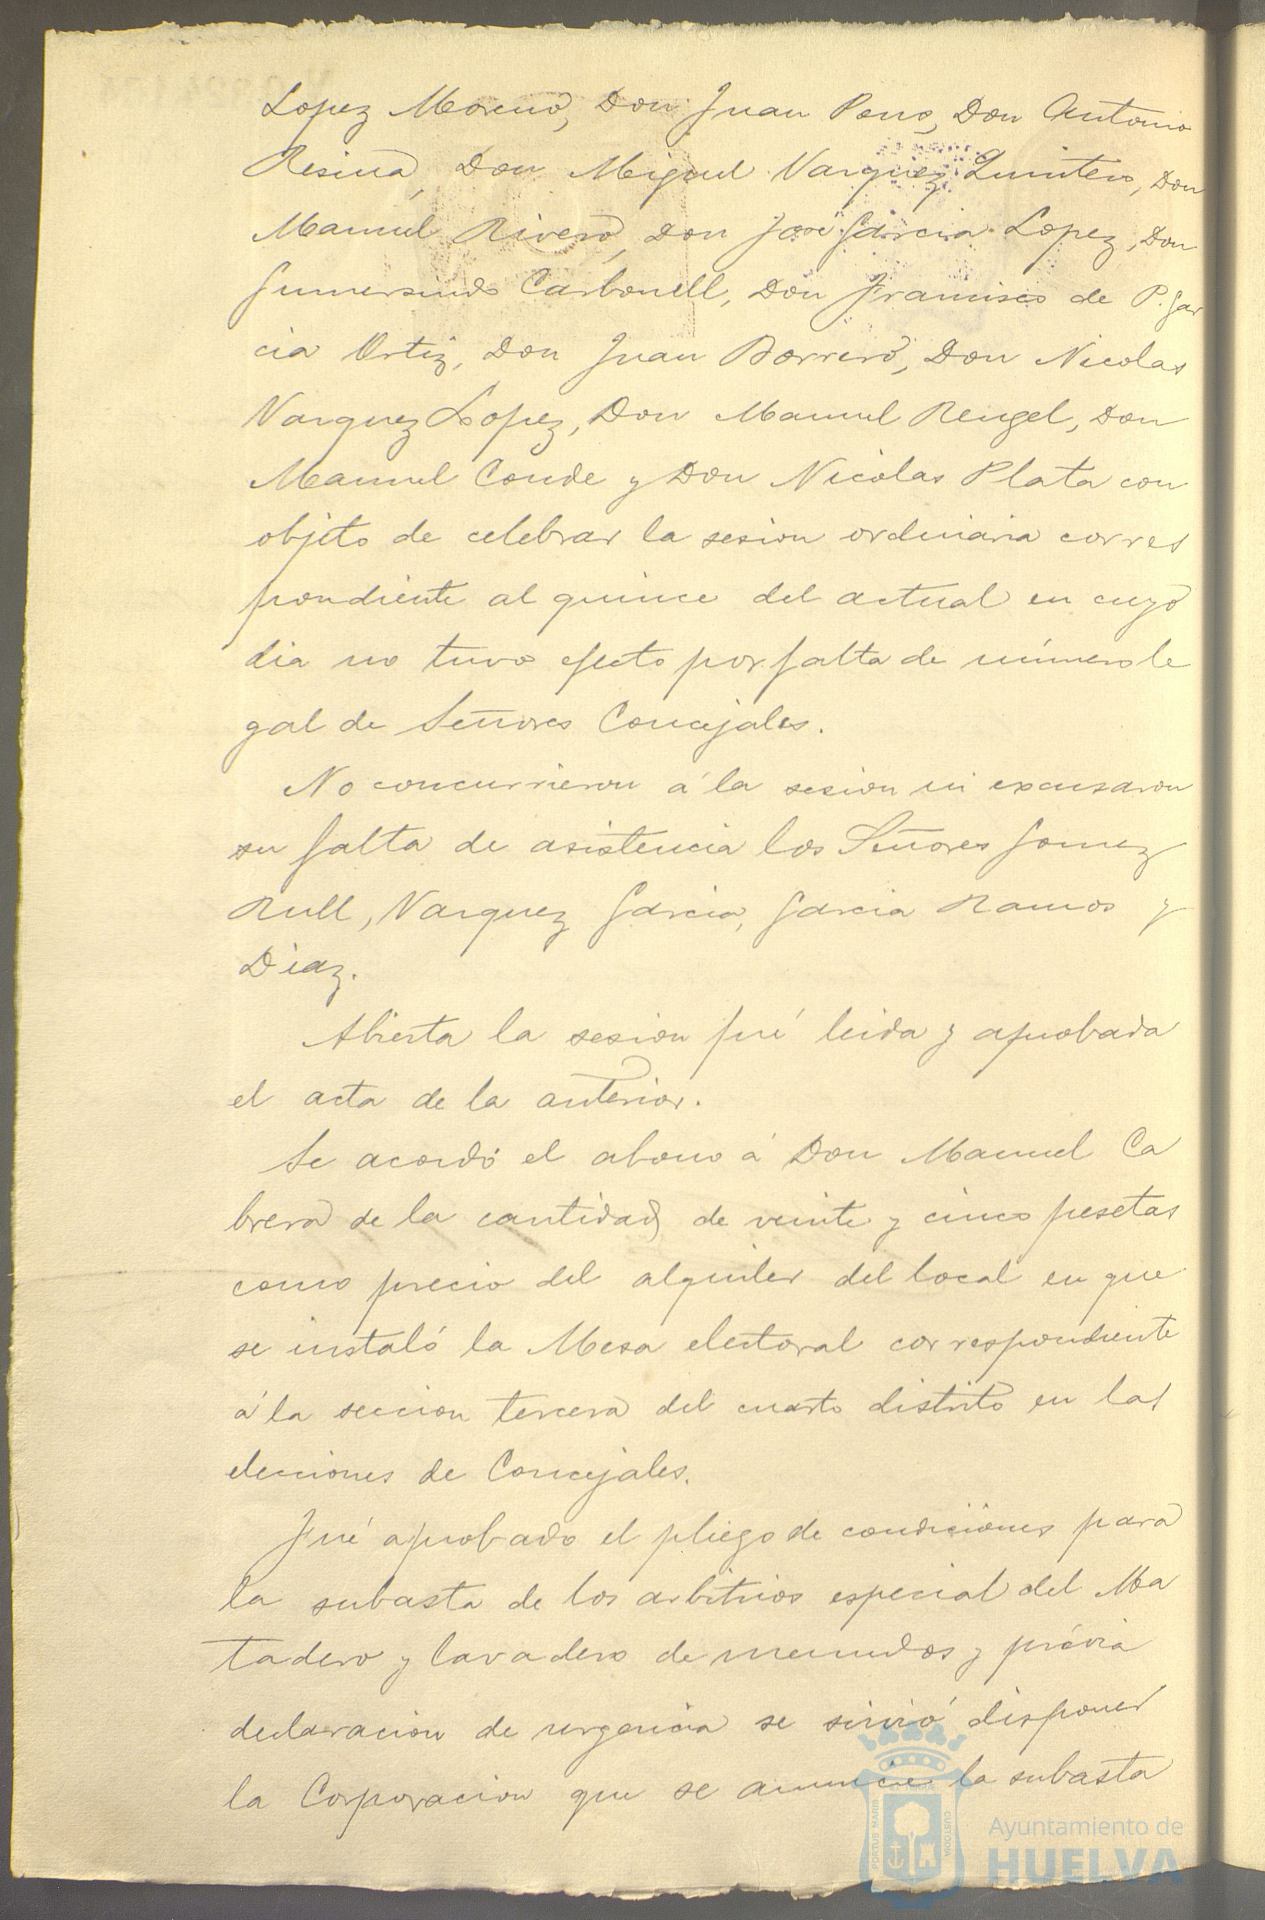 Lopez Moreno, Don Juan Pons, Don Antonio
Resina, Don Miguel Vazquez Quintero, Don
Manuel Rivero, Don José Garcia Lopez, Don
Gumersindo Carbonell, Don Francisco de P. Gar
cia Ortiz, Don Juan Borrero, Don Nicolas
Vazquez Lopez, Don Manuel Rengel, Don
Manuel Conde y Don Nicolas Plata con
objeto de celebrar la sesion ordinaria corres
pondiente al quince del actual en cuyo
dia no tuvo efecto por falta de número le
gal de Señores Concejales.
No concurrieron á la sesion ni excusaron
su falta de asistencia los Señores Gomez
Rull, Vazquez Garcia, Garcia Ramos y
Diaz.
Abierta la sesion fué leida y aprobada
el acta de la anterior.
Se acordó el abono á Don Manuel Ca
brera de la cantidad de veinte y cinco pesetas
como precio del alquiler del local en que
se instaló la Mesa electoral correspondiente
á la seccion tercera del cuarto distrito en las
elecciones de Concejales.
Fué aprobado el pliego de condiciones para
la subasta de los arbitrios especial del Ma
tadero y lavadero de menudos y prévia
declaracion de urgencia se sirvió disponer
la Corporacion que se anuncie la subasta
PORTUS MARIS
CUSTODIA
Ayuntamiento de
HUELVA